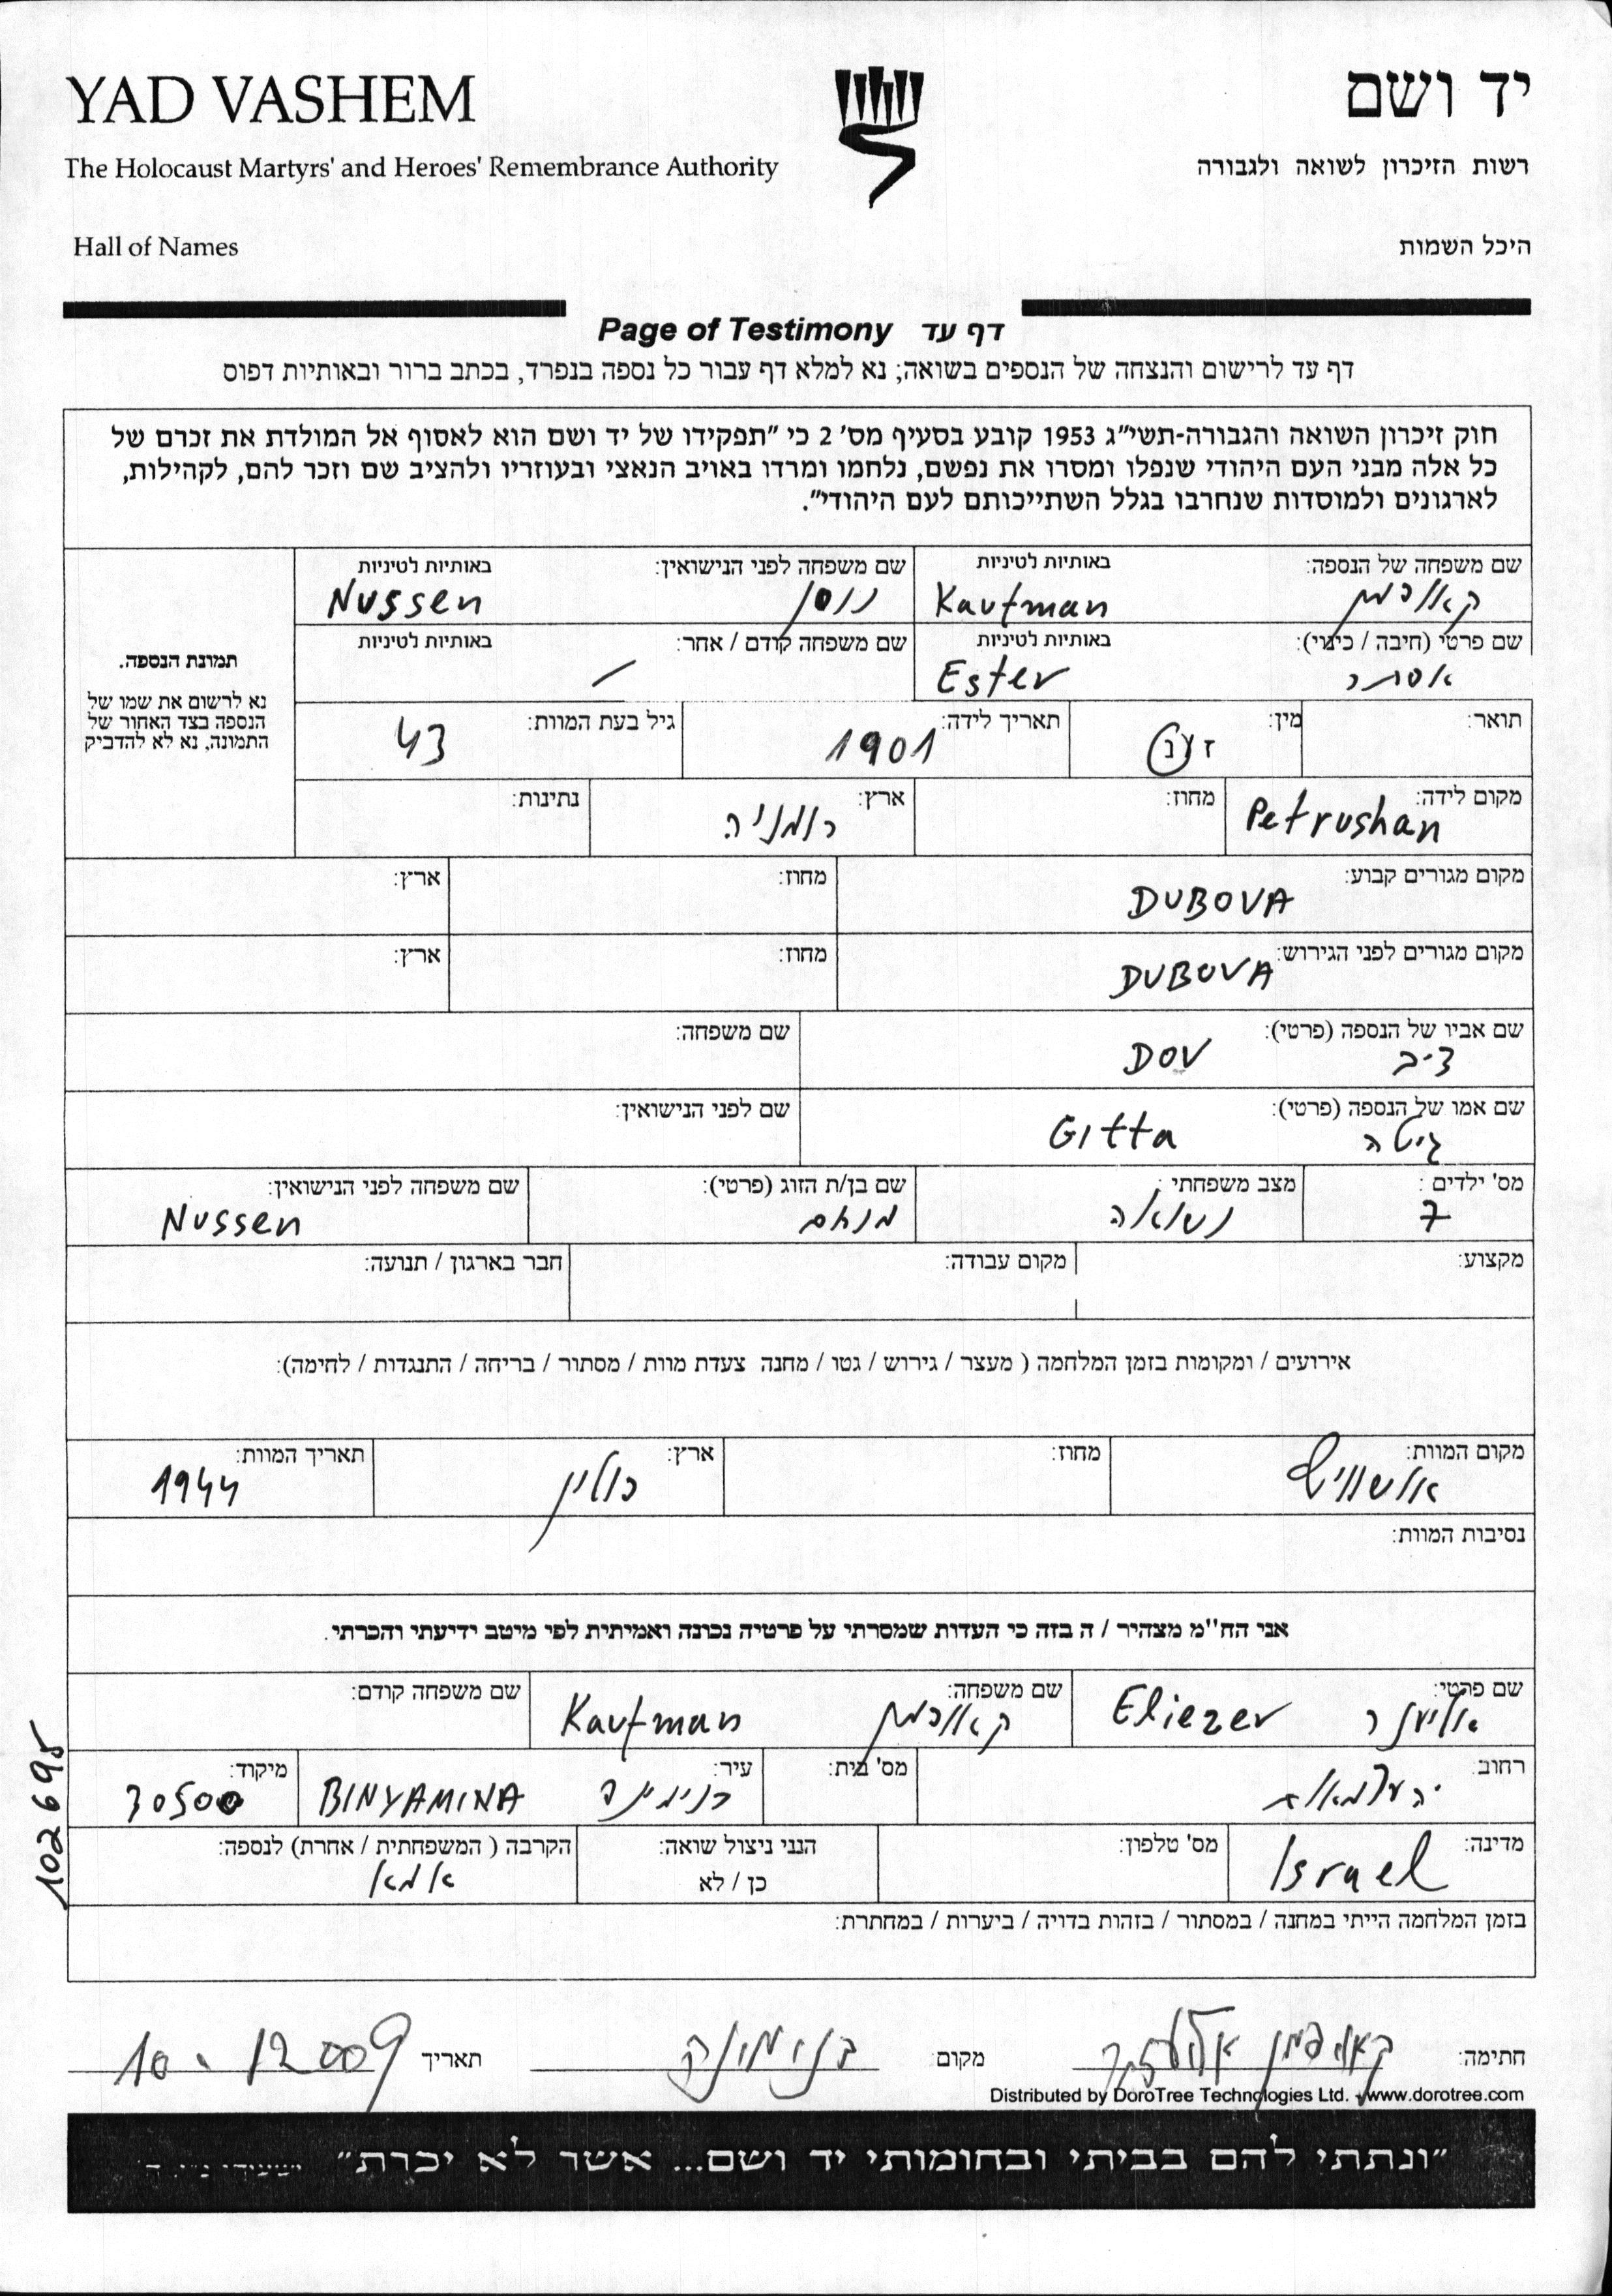 YAD VASHEM
יד ושם
The Holocaust Martyrs' and Heroes' Remembrance Authority
רשות הזיכרון לשואה ולגבורה
Hall of Names
היכל השמות
Page of Testimony דף עד
דף עד לרישום והנצחה של הנספים בשואה; נא למלא דף עבור כל נספה בנפרד, בכתב ברור ובאותיות דפוס
חוק זיכרון השואה והגבורה-תשי"ג 1953 קובע בסעיף מס' 2 כי "תפקידו של יד ושם הוא לאסוף אל המולדת את זכרם של
כל אלה מבני העם היהודי שנפלו ומסרו את נפשם, נלחמו ומרדו באויב הנאצי ובעוזריו ולהציב שם וזכר להם, לקהילות,
לארגונים ולמוסדות שנחרבו בגלל השתייכותם לעם היהודי".
שם משפחה של הנספה: באותיות לטיניות
קאופמן Kaufman
שם משפחה לפני הנישואין: באותיות לטיניות
נוסן Nussen
שם פרטי (חיבה / כינוי): באותיות לטיניות
אסתר Ester
שם משפחה קודם / אחר: באותיות לטיניות
תמונת הנספה.
נא לרשום את שמו של
הנספה בצד האחור של
התמונה, נא לא להדביק
תואר:
מין: ז / נ
תאריך לידה: 1901
גיל בעת המוות: 43
מקום לידה: Petrushan
מחוז:
ארץ: רומניה
נתינות:
מקום מגורים קבוע: DUBOVA
מחוז:
ארץ:
מקום מגורים לפני הגירוש: DUBOVA
מחוז:
ארץ:
שם אביו של הנספה (פרטי):
DOV
שם משפחה:
שם אמו של הנספה (פרטי):
גיטה Gitta
שם לפני הנישואין:
מס' ילדים : 7
מצב משפחתי : נשואה
שם בן/ת הזוג (פרטי): מנחם
שם משפחה לפני הנישואין: Nussen
מקצוע:
מקום עבודה:
חבר בארגון / תנועה:
אירועים / ומקומות בזמן המלחמה ( מעצר / גירוש / גטו / מחנה צעדת מוות / מסתור / בריחה / התנגדות / לחימה):
מקום המוות: אושוויץ
מחוז:
ארץ: פולין
תאריך המוות: 1944
נסיבות המוות:
אני הח"מ מצהיר / ה בזה כי העדות שמסרתי על פרטיה נכונה ואמיתית לפי מיטב ידיעתי והכרתי.
שם פרטי: אליעזר Eliezer
שם משפחה: קאופמן Kaufman
שם משפחה קודם:
רחוב: העצמאות
מס' בית:
עיר: בנימינה BINYAMINA
מיקוד: 30500
מדינה: Israel
מס' טלפון:
הנני ניצול שואה:
כן / לא
הקרבה ( המשפחתית / אחרת) לנספה:
אמא
בזמן המלחמה הייתי במחנה / במסתור / בזהות בדויה / ביערות / במחתרת:
102695
חתימה: קאופמן אליעזר
מקום בנימינה
תאריך 10.12009
Distributed by DoroTree Technologies Ltd. - www.dorotree.com
"ונתתי להם בביתי ובחומותי יד ושם... אשר לא יכרת"